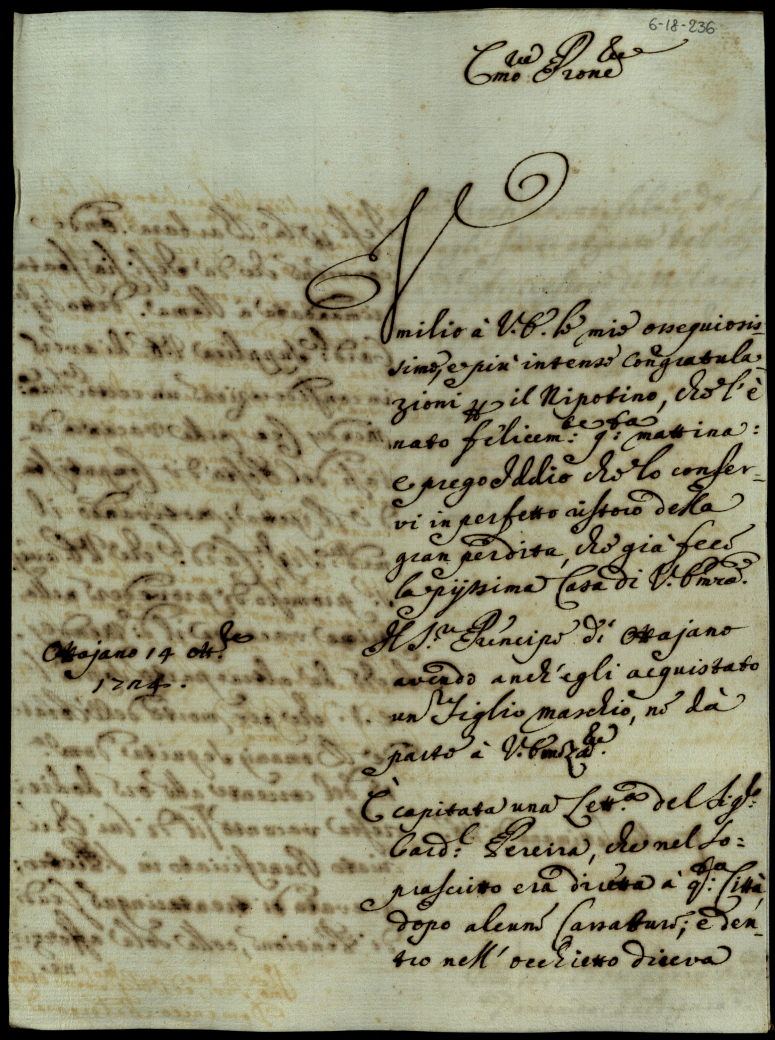 6-18-236
Em.mo Prone
Umilio à V. E. le mie ossequiosis-
sime, e più intense congratula-
zioni p il Nipotino, che l'è
nato felicem.te q.ta mattina:
e prego Iddio che lo conser-
vi in perfetto ristoro della
gran perdita, che già fece
la pijssima Casa di V. Emza.
Il S.r Principe di Ottajano
avendo anch'egli acquistato
un Figlio maschio, ne dà
parte à V. Emza.
È capitata una Lett.a del Sig.
Card.l Pereira, che nel so=
prascritto era diretta à q.ta Città,
dopo alcune Cassature; e den-
tro nell'occhietto diceva
Ottajano 14 ott.re
1724.